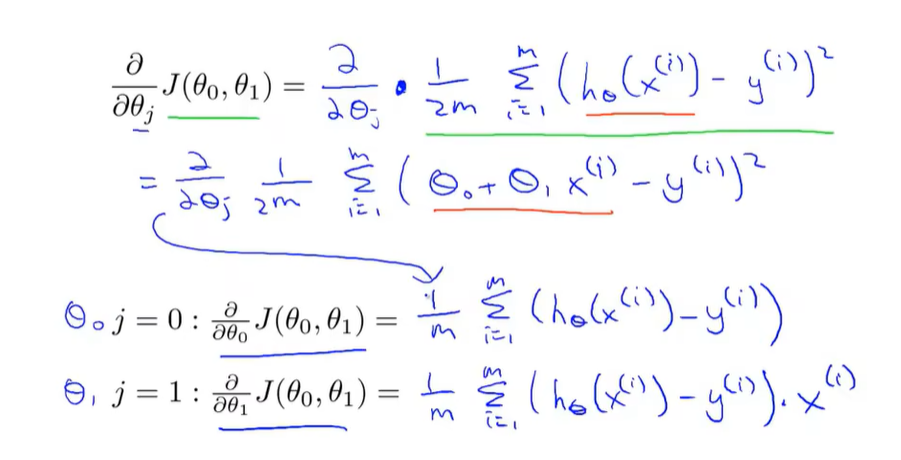 ∂/∂θ_j J(θ_0, θ_1) = ∂/∂θ_j · 1/2m Σ_{i=1}^{m} (h_θ(x^{(i)}) − y^{(i)})^2
= ∂/∂θ_j 1/2m Σ_{i=1}^{m} (θ_0 + θ_1 x^{(i)} − y^{(i)})^2
θ_0 j = 0 : ∂/∂θ_0 J(θ_0, θ_1) = 1/m Σ_{i=1}^{m} (h_θ(x^{(i)}) − y^{(i)})
θ_1 j = 1 : ∂/∂θ_1 J(θ_0, θ_1) = 1/m Σ_{i=1}^{m} (h_θ(x^{(i)}) − y^{(i)}) · x^{(i)}